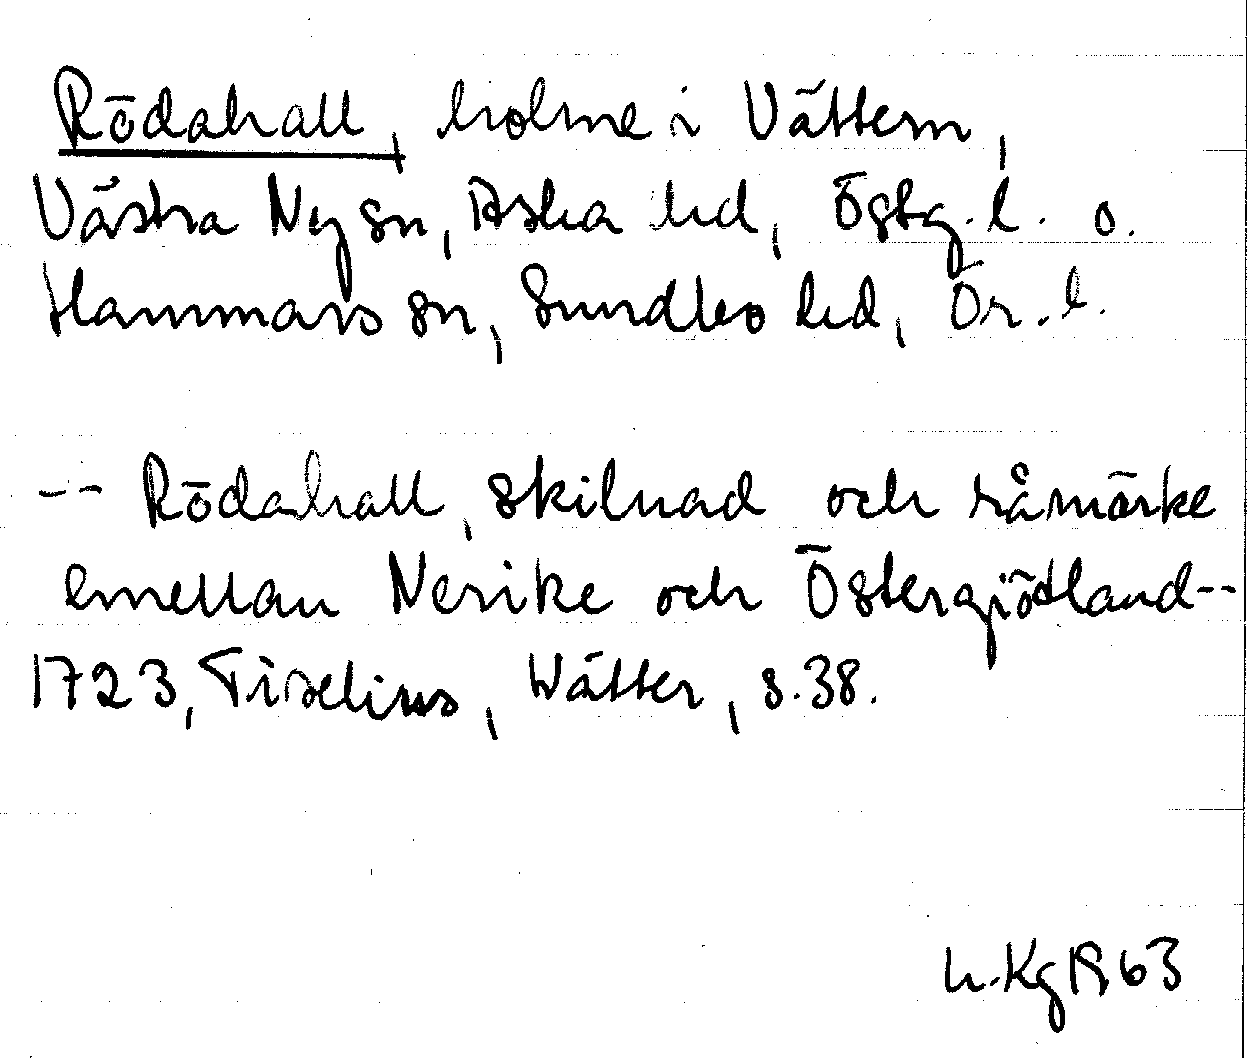 Rödahall, holme i Vättern,
Västra Ny sn, Aska hd, Östg.l. o.
Hammars sn, Sundbo hd, Ör.l.
-- Rödahall, skilnad och råmärke
emellan Nerike och Östergiötland--
1723, Tiselius, Wätter, s.38.
h.Kg 1963